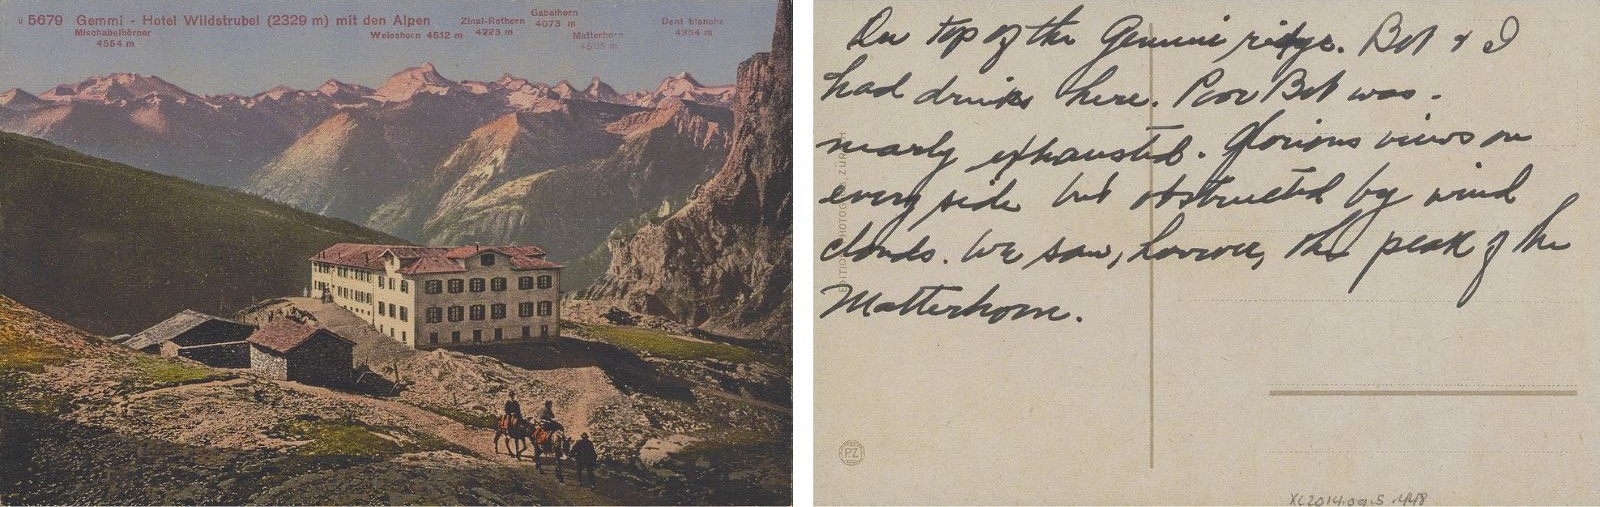 5679 Gemmi - Hotel Wildstrubel (2329 m) mit den Alpen
Mischabelhörner
4554 m
Weisshorn 4512 m
Zinal-Rothorn
4223 m
Gabelhorn
4073 m
Matterhorn
4505 m
Dent blanche
4354 m
On top of the Gemmi ridge. Bob & I
had drinks here. Poor Bob was
nearly exhausted. Glorious views on
every side but obstructed by wind
clouds. We saw, however, the peak of the
Matterhorn.
EDITION PHOTOGLOB, ZÜRICH
PZ
XC2014.09.5.448